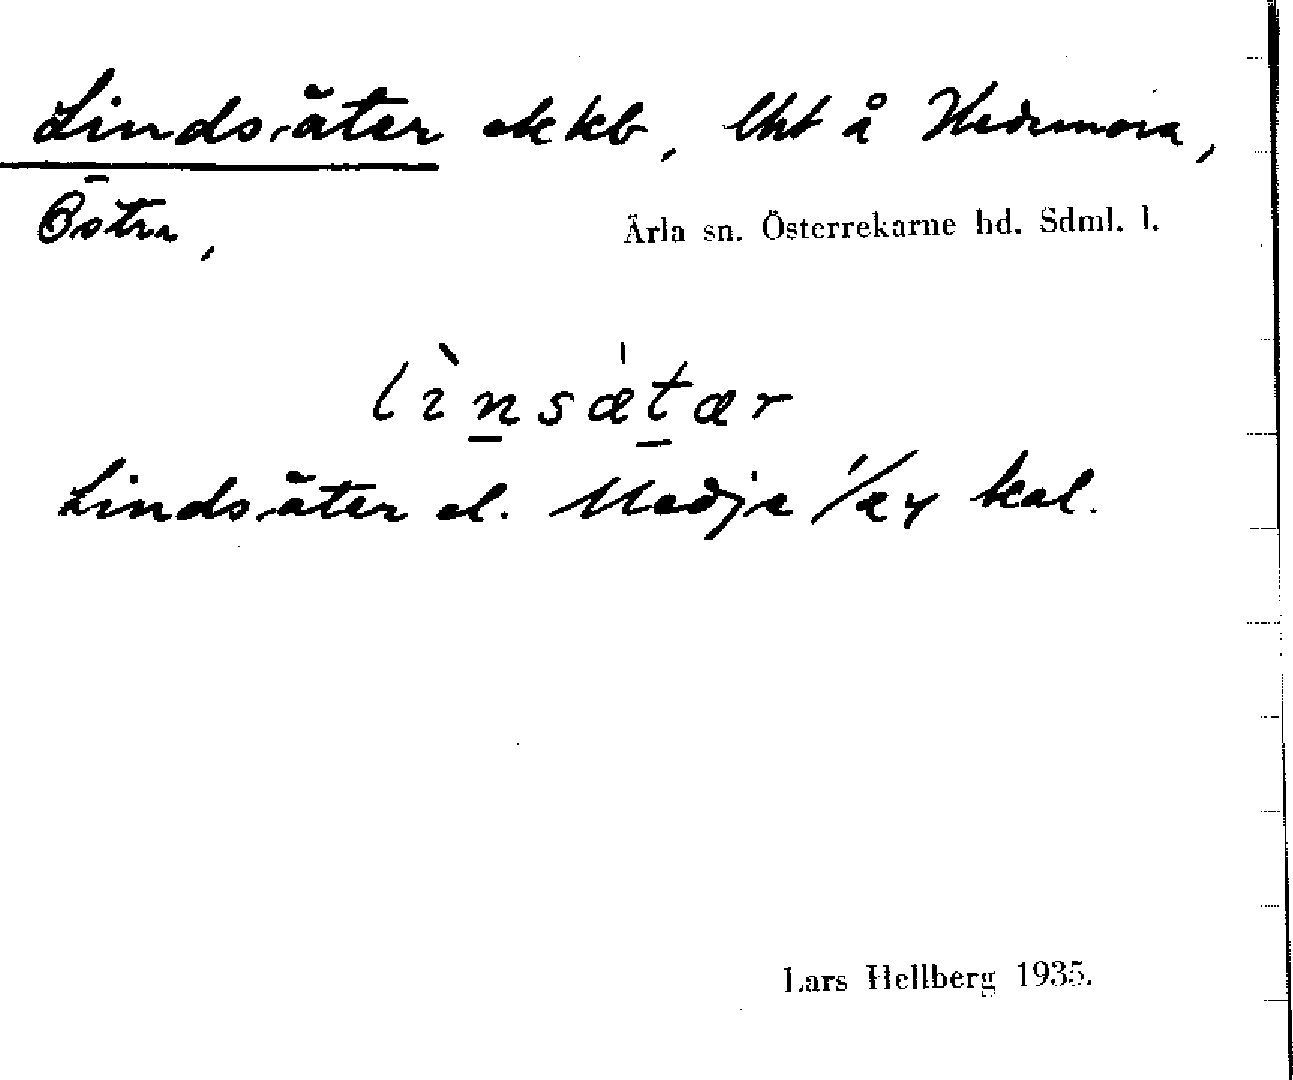 Lindsäter ekkb, lht å Hedemora,
Östra,
Ärla sn. Österrekarne hd. Sdml. l.
lìnsætær
Lindsäter el. Nedja 1/24 kal.
Lars Hellberg 1935.